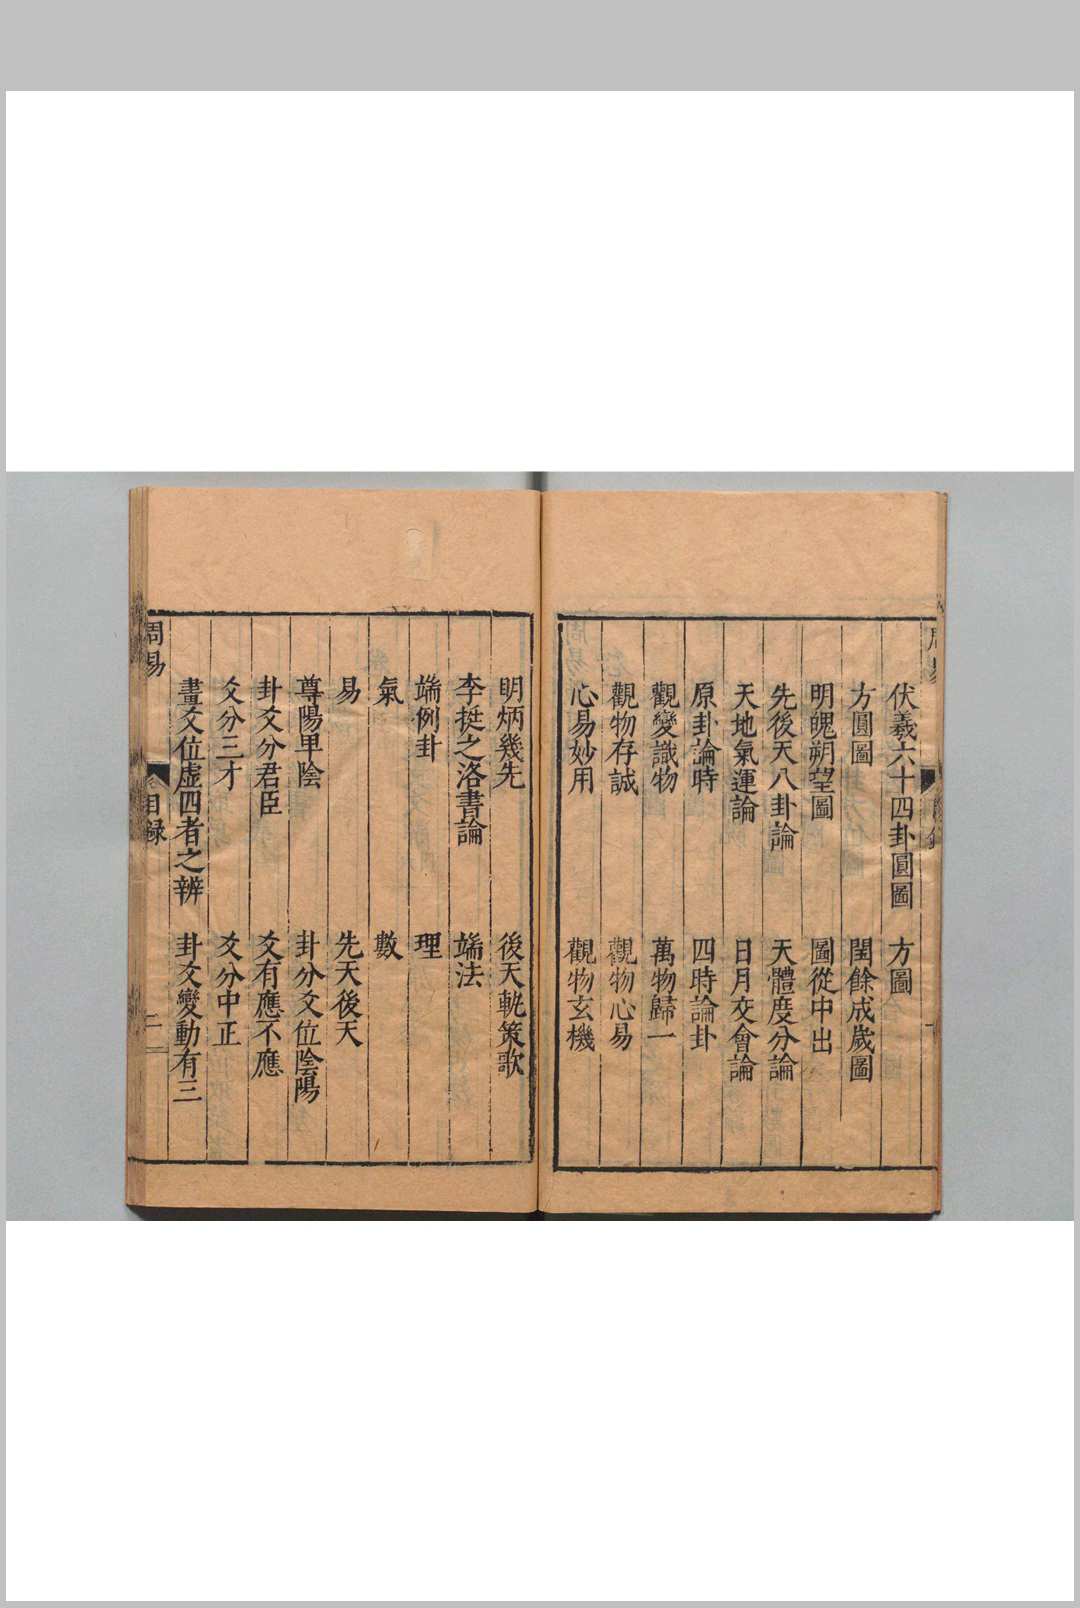 伏羲六十四卦圓圖 方圖
方圓圖 閏餘成歲圖
明魄朔望圖 圖從中出
先後天八卦論 天體度分論
天地氣運論 日月交會論
原卦論時 四時論卦
觀變識物 萬物歸一
觀物存誠 觀物心易
心易妙用 觀物玄機
明炳幾先 後天軌策歌
李挺之洛書論 端法
端例卦 理
氣 數
易 先天後天
尊陽卑陰 卦分爻位陰陽
卦爻分君臣 爻有應不應
爻分三才 爻分中正
畫爻位虛四者之辨 卦爻變動有三
周易 目録 二